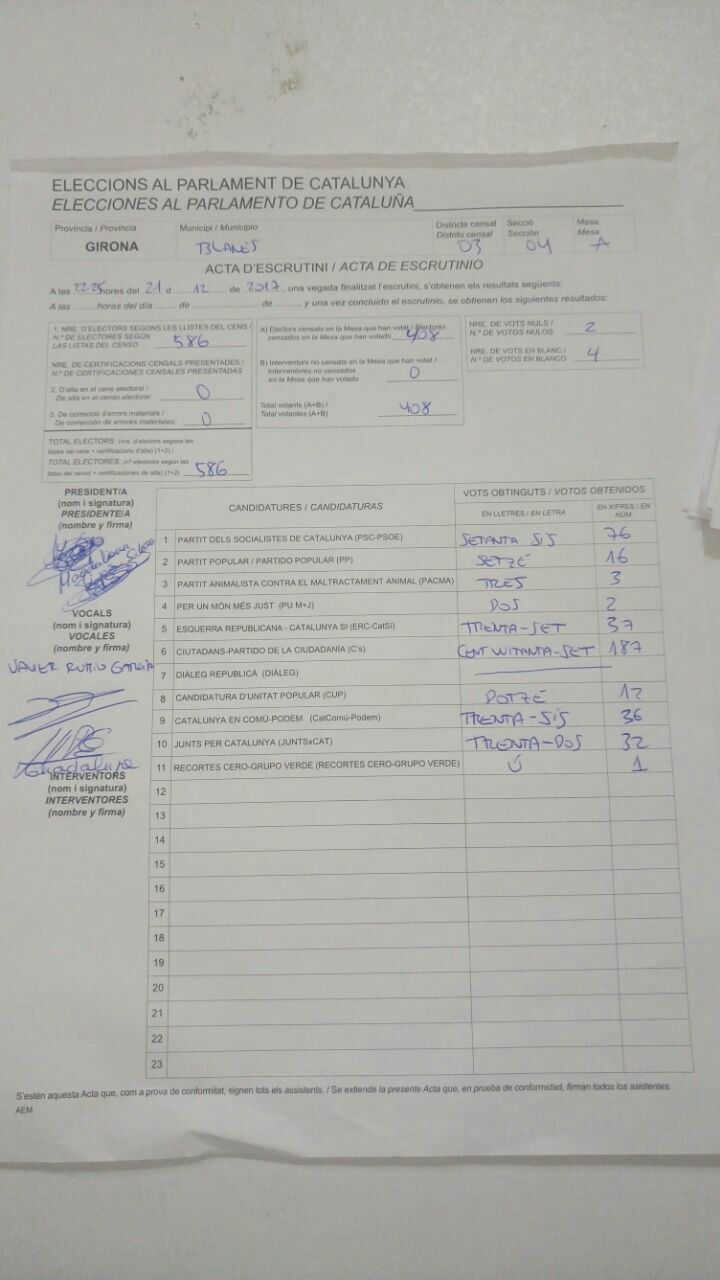 ELECCIONS AL PARLAMENT DE CATALUNYA
ELECCIONES AL PARLAMENTO DE CATALUÑA
Provincia / Provincia Municipi / Municipio Districte censal Secció Mesa
Distrito censal Sección Mesa
GIRONA BLANES 03 04 A
ACTA D'ESCRUTINI / ACTA DE ESCRUTINIO
A les 22:25 hores del 21 d 12 de 2017, una vegada finalitzat l'escrutini, s'obtenen els resultats següents:
A las ........ horas del día ........ de ........ de ........, y una vez concluido el escrutinio, se obtienen los siguientes resultados:
1. NRE. D'ELECTORS SEGONS LES LLISTES DEL CENS /
N.º DE ELECTORES SEGÚN
LAS LISTAS DEL CENSO 586
NRE. DE CERTIFICACIONS CENSALS PRESENTADES /
N.º DE CERTIFICACIONES CENSALES PRESENTADAS
2. D'alta en el cens electoral /
De alta en el censo electoral: 0
3. De correcció d'errors materials /
De corrección de errores materiales: 0
TOTAL ELECTORS: (nre. d'electors segons les
llistes del cens + certificacions d'alta) (1+2) /
TOTAL ELECTORES: (nº electores según las
listas del censo + certificaciones de alta) (1+2) 586
A) Electors censats en la Mesa que han votat / Electores
censados en la Mesa que han votado 408
B) Interventors no censats en la Mesa que han votat /
Interventores no censados
en la Mesa que han votado 0
Total votants (A+B) /
Total votantes (A+B) 408
NRE. DE VOTS NULS /
N.º DE VOTOS NULOS 2
NRE. DE VOTS EN BLANC /
N.º DE VOTOS EN BLANCO 4
PRESIDENT/A
(nom i signatura)
PRESIDENTE/A
(nombre y firma)
VOCALS
(nom i signatura)
VOCALES
(nombre y firma)
JAVIER RUBIO GARCIA
Guadalupe
INTERVENTORS
(nom i signatura)
INTERVENTORES
(nombre y firma)
CANDIDATURES / CANDIDATURAS VOTS OBTINGUTS / VOTOS OBTENIDOS
EN LLETRES / EN LETRA EN XIFRES / EN NÚM.
1 PARTIT DELS SOCIALISTES DE CATALUNYA (PSC-PSOE) SETANTA SIS 76
2 PARTIT POPULAR / PARTIDO POPULAR (PP) SETZE 16
3 PARTIT ANIMALISTA CONTRA EL MALTRACTAMENT ANIMAL (PACMA) TRES 3
4 PER UN MÓN MÉS JUST (PU M+J) DOS 2
5 ESQUERRA REPUBLICANA - CATALUNYA SI (ERC-CatSí) TRENTA-SET 37
6 CIUTADANS-PARTIDO DE LA CIUDADANÍA (C's) CENT VUITANTA-SET 187
7 DIÀLEG REPUBLICÀ (DIÀLEG)
8 CANDIDATURA D'UNITAT POPULAR (CUP) DOTZE 12
9 CATALUNYA EN COMÚ-PODEM (CatComú-Podem) TRENTA-SIS 36
10 JUNTS PER CATALUNYA (JUNTSxCAT) TRENTA-DOS 32
11 RECORTES CERO-GRUPO VERDE (RECORTES CERO-GRUPO VERDE) Ú 1
12
13
14
15
16
17
18
19
20
21
22
23
S'estén aquesta Acta que, com a prova de conformitat, signen tots els assistents. / Se extiende la presente Acta que, en prueba de conformidad, firman todos los asistentes.
AEM